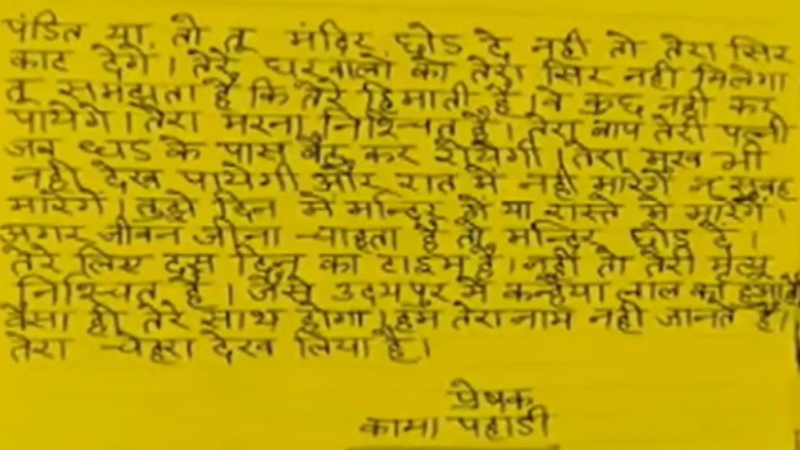 पंडित या तो तू मंदिर छोड दे नही तो तेरा सिर
काट देगें। तेरे घरवालो को तेरा सिर नही मिलेगा
तू समझता है कि तेरे हिमाती है। वे कुछ नही कर
पायेगे। तेरा मरना निश्चित है। तेरा बाप तेरी पत्नी
जब धड के पास बैठ कर रोयेगी। तेरा मुख भी
नही देख पायेगी और रात में नही मारेगें न सुबह
मारेगें। तुझे दिन में मन्दिर में या रास्ते में मारेगें।
अगर जीवन जीना चाहता है तो मन्दिर छोड दे।
तेरे लिए दस दिन का टाइम है। नही तो तेरी मृत्यू
निश्चित है। जैसे उदयपुर में कन्हैया लाल का
वैसा ही तेरे साथ होगा। हम तेरा नाम नही जानते है।
तेरा चेहरा देख लिया है।
प्रेषक
कामा पहाडी